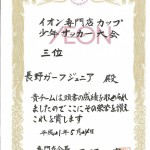 イオン専門店カップ
少年サッカー大会
三位
長野ガーフジュニア 殿
貴チームは頭書の成績を収められ
ましたのでここにその栄誉を讃え
これを賞します
平成21年5月
専門店会